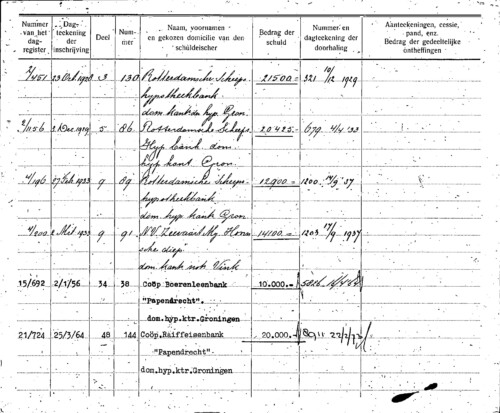 Nummer van het dag-register | Dag-teekening der inschrijving | Deel | Num-mer | Naam, voornamen en gekozen domicilie van den schuldeischer | Bedrag der schuld | Nummer en dagteekening der doorhaling | Aanteekeningen, cessie, pand, enz. Bedrag der gedeeltelijke ontheffingen
2/451 23 Oct 1920 3 130 Rotterdamsche Scheeps 21500= 321 10/12 1929
hypotheekbank
dom. kantoor hyp. Gron.
2/1156 2 Dec 1929 5 86 Rotterdamsche Scheeps 20425- 679 4/4 '33
Hyp. bank dom.
hyp. kant. Gron.
4/196 27 Feb 1933 9 89 Rotterdamsche Scheeps 12900= 1200 '37
hypotheekbank
dom. hyp. kant. Gron
4/200 2 1933 9 91 N.V. Zeevaart Mij. Hoorn 14100= 1203 17/9 1937
sche diep
dom. kant. not. Vink
15/692 2/1/56 34 38 Coöp Boerenleenbank 10.000.-
"Papendrecht".
dom.hyp.ktr.Groningen
21/724 25/3/64 48 144 Coöp.Raiffeisenbank 20.000.-
"Papendrecht".
dom.hyp.ktr.Groningen